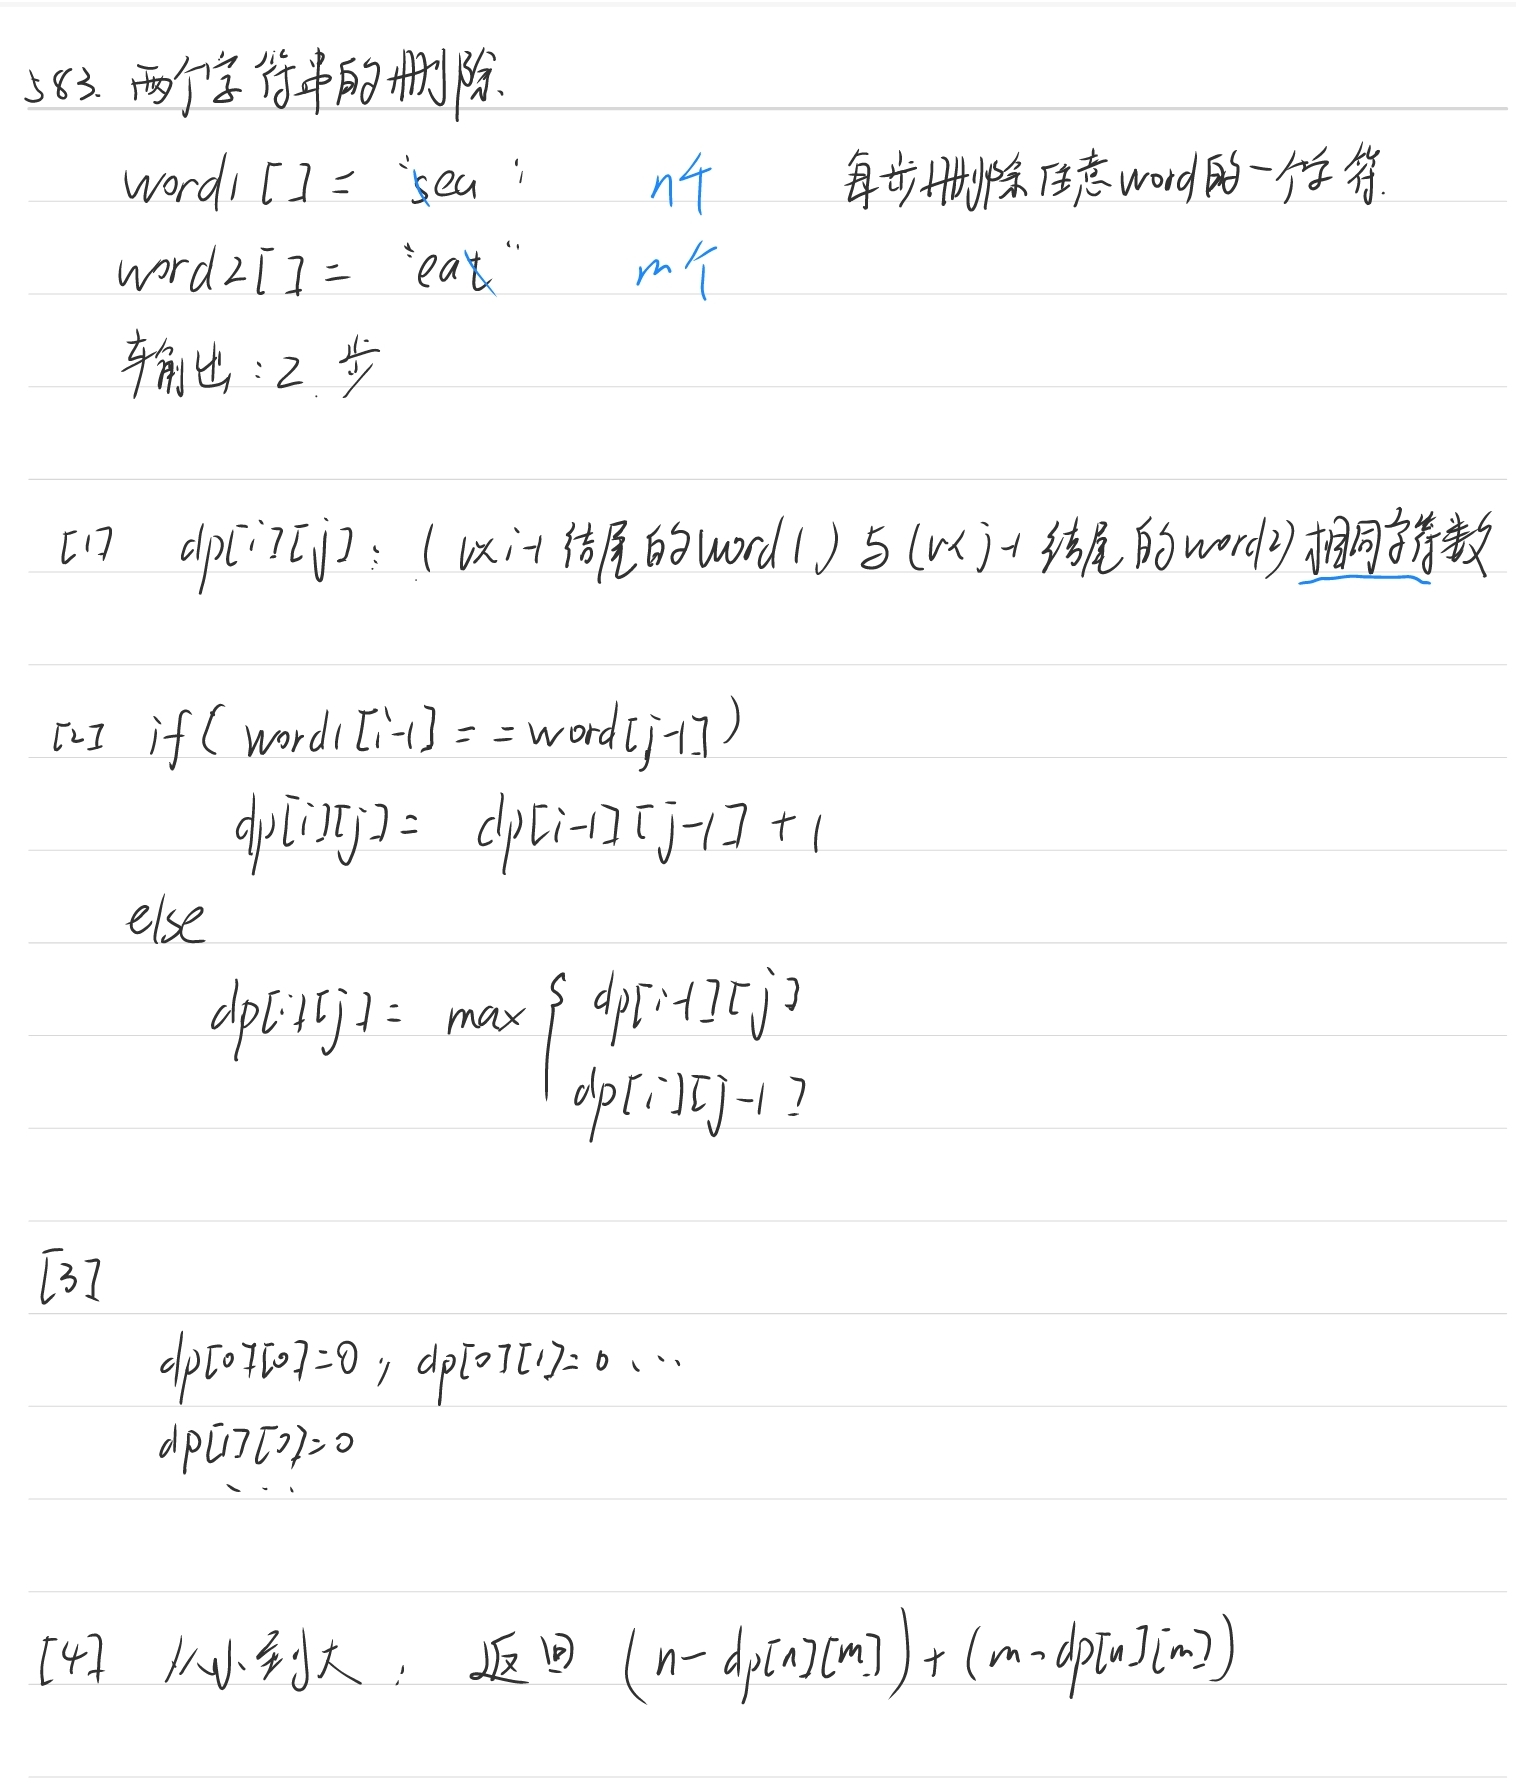 583. 两个字符串的删除.
word1 [ ] = "sea" n个 每步删除任意word的一个字符.
word2[ ] = "eat" m个
输出 : 2 步
[1] dp[i][j] : (以i-1结尾的word1) 与 (以j-1结尾的word2) 相同字符数
[2] if( word1[i-1] == word[j-1])
dp[i][j] = dp[i-1][j-1] + 1
else
dp[i][j] = max { dp[i-1][j]
dp[i][j-1]
[3]
dp[0][0]=0 ; dp[0][1]=0 、...
dp[1][0]=0
、...
[4] 从小到大 ; 返回 (n- dp[n][m]) + (m-dp[n][m])